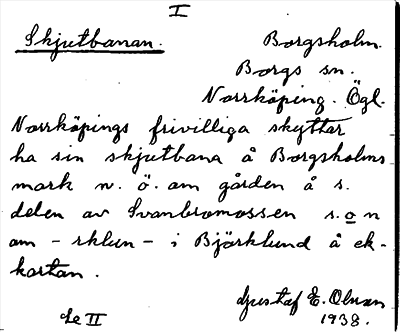 I
Skjutbanan. Borgsholm.
Borgs sn.
Norrköping. Ögl.
Norrköpings frivilliga skyttar
ha sin skjutbana å Borgsholms
mark n. ö. om gården å s.
delen av Svanbromossen s. o n
om - rklun - i Björklund å ek-
kartan.
Se II
Gustaf E. Olsson
1938.